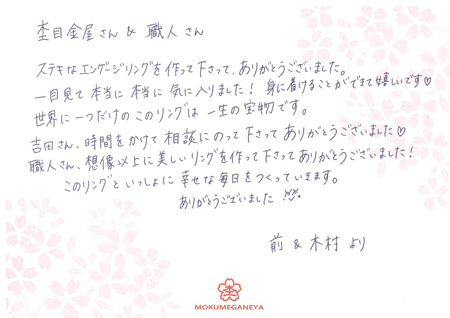 杢目金屋さん & 職人さん
ステキなエンゲージリングを作って下さって、ありがとうございました。
一目見て本当に本当に気に入りました！身に着けることができて嬉しいです♡
世界に一つだけのこのリングは一生の宝物です。
吉田さん、時間をかけて相談にのって下さってありがとうございました♡
職人さん、想像以上に美しいリングを作って下さってありがとうございました！
このリングといっしょに幸せな毎日をつくっていきます。
ありがとうございました
前 & 木村 より
MOKUMEGANEYA